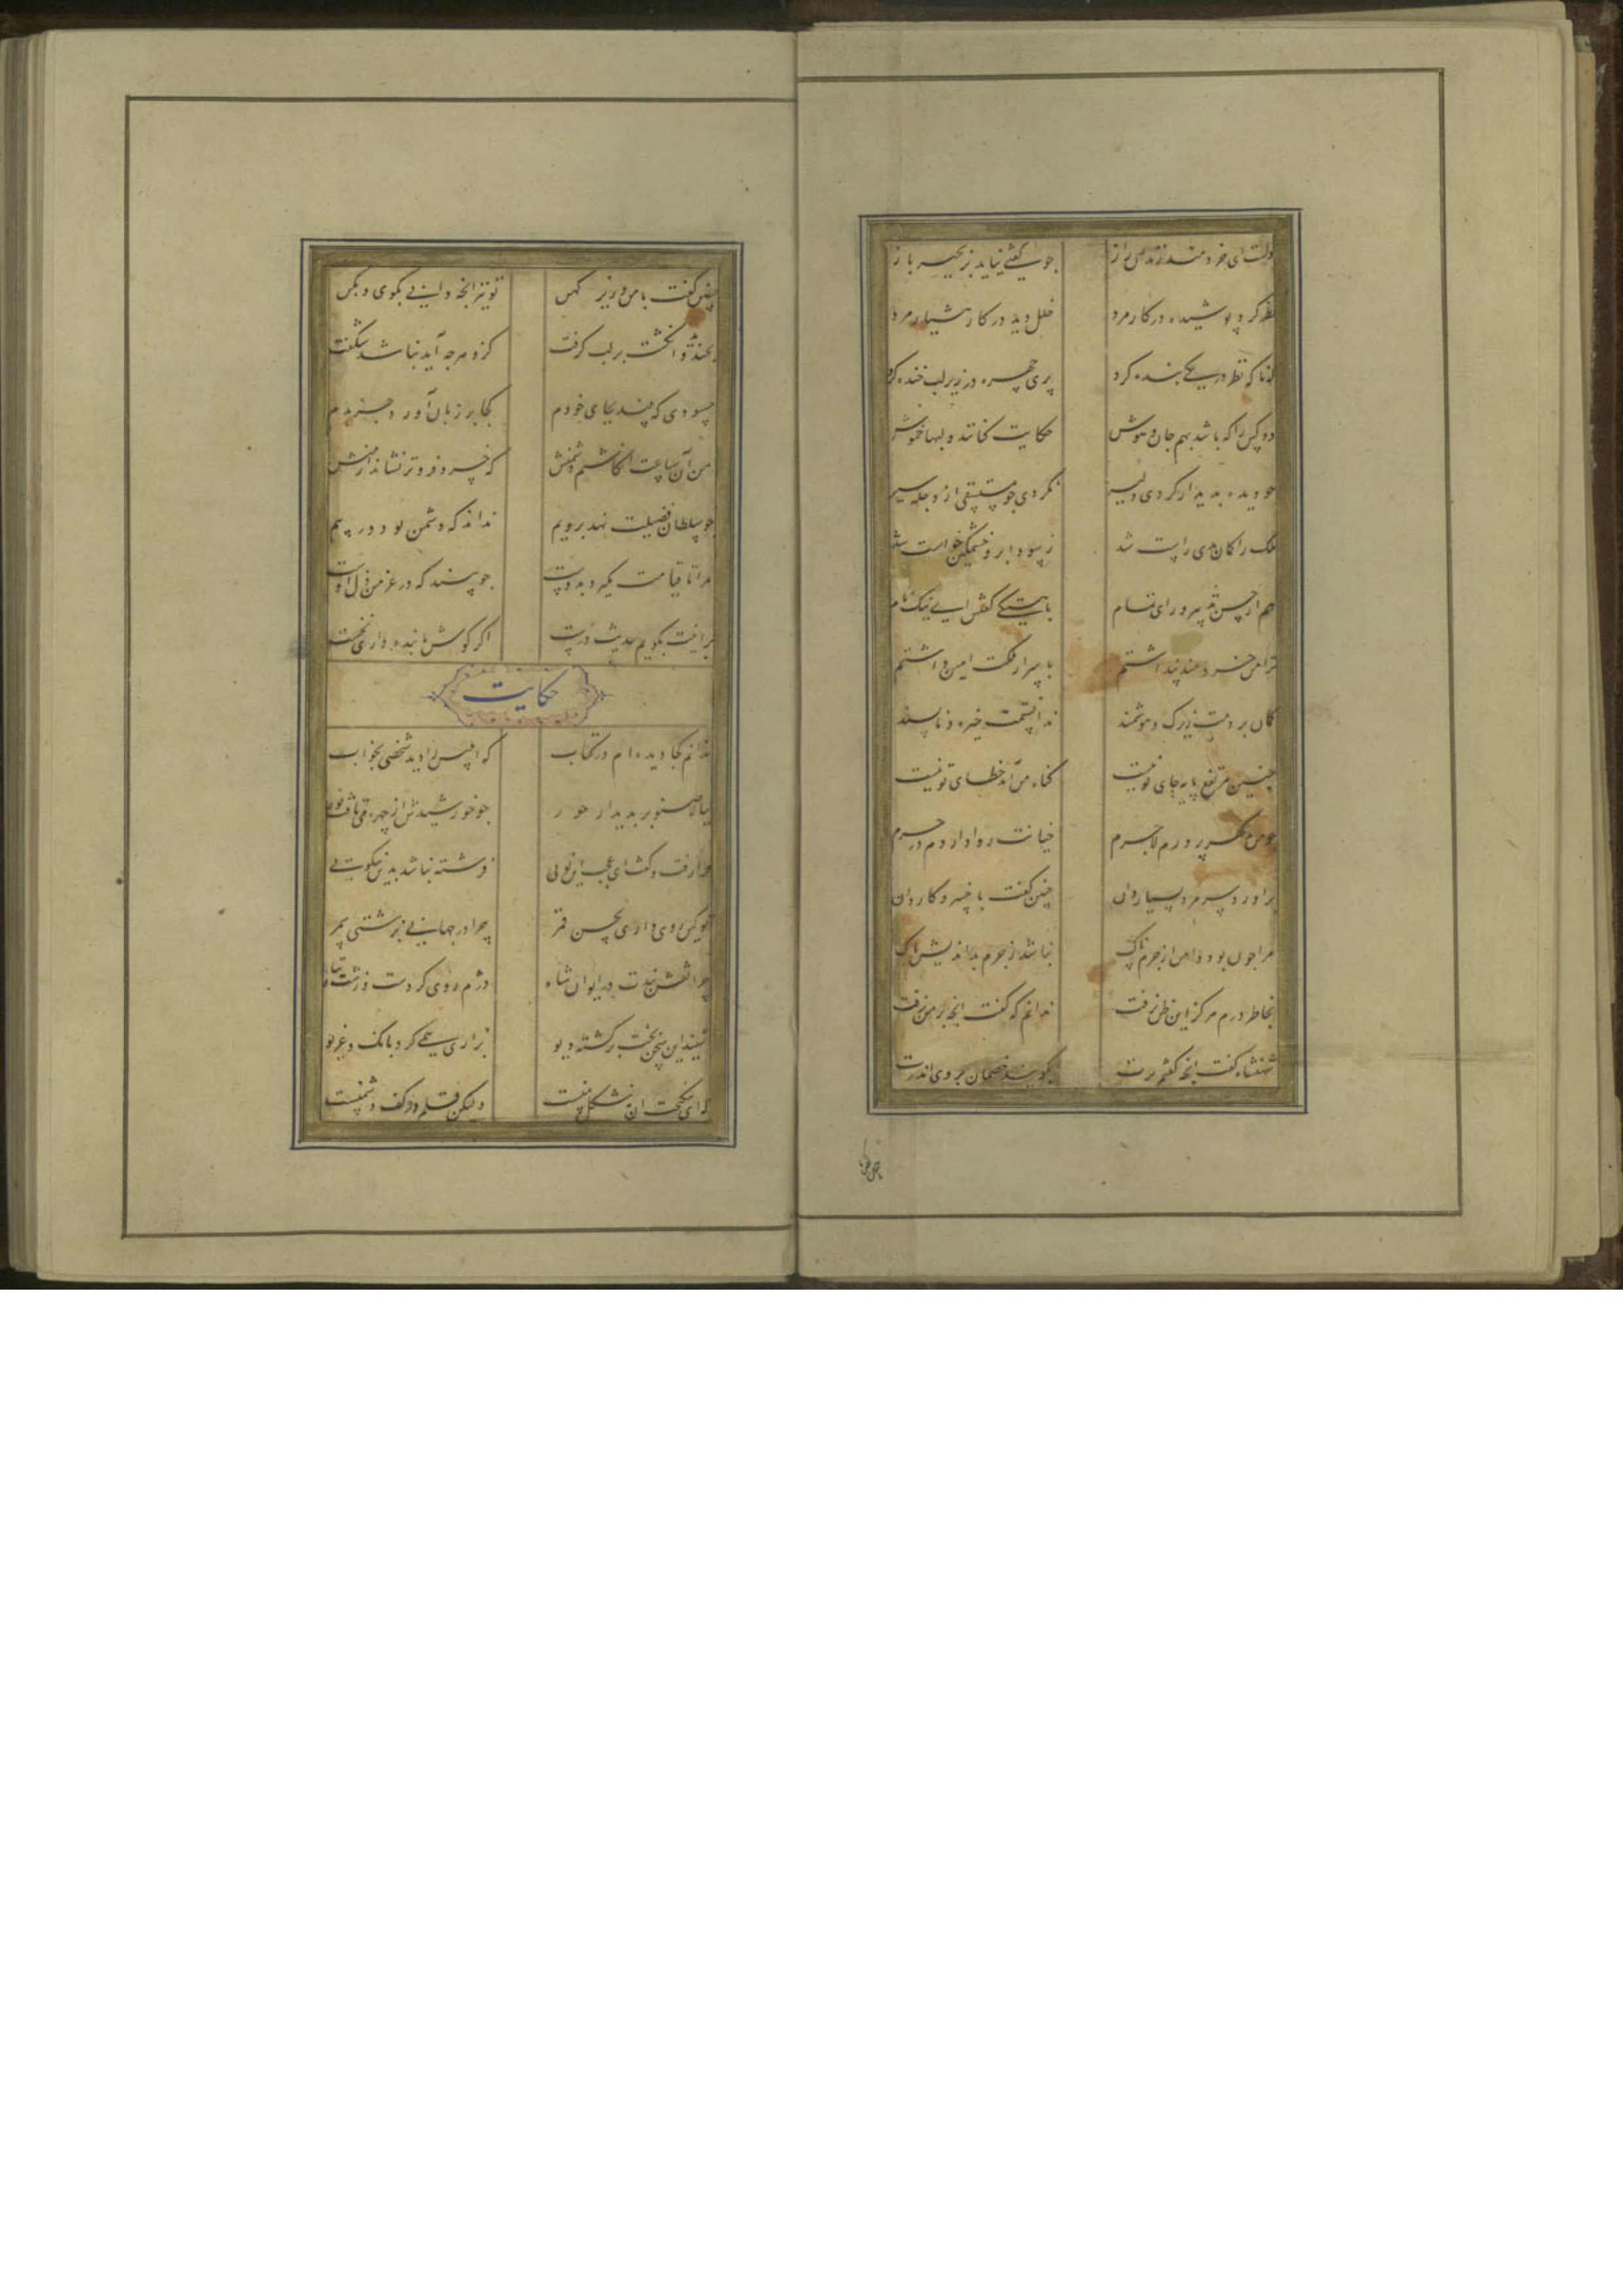 دلست ای خردمند زندان راز چو گفتی نیاید بزنجیر باز
نظر کرد پوشیده در کار مرد خلل دید در کار هشیار مرد
که ناگه نظر در یکی بنده کرد پری چهره در زیر لب خنده کرد
دو کس را که باشد بهم جان و هوش حکایت کنانند و لبها خموش
چو دیده بدیدار کردی دلیر نگردی چو مستسقی از دجله سیر
ملک را گمان بدی راست شد ز سودا برو خشمگین خواست شد
هم از حسن تدبیر و رای تمام باهستگی گفتش ای نیک نام
ترا من خردمند پنداشتم باسرار ملکت امین داشتم
گمان بردمت زیرک و هوشمند ندانستمت خیره و ناپسند
چنین مرتفع پایه جای تو نیست گناه من آمد خطای تو نیست
چو من بدگهر پرورم لاجرم خیانت روا داردم در حرم
برآورد سر مرد بسیاردان چنین گفت با خسرو کاردان
مرا چون بود دامن از جرم پاک نباشد ز جرم بداندیش باک
بخاطر درم هرگز این ظن نرفت ندانم که گفت آنچه بر من نرفت
شهنشاه گفت آنچه گفتم برت بگویند خصمان بروی اندرت
چنین گفت با من وزیر کهن تو نیز آنچه دانی بگوی و بکن
بخندید و انگشت بر لب گرفت کزو هرچه آید نباشد شگفت
حسودی که بیند بجای خودم کجا بر زبان آورد جز بدم
من آن ساعت انگاشتم دشمنش که خسرو فروتر نشاند از منش
چو سلطان فضیلت نهد برویم نداند که دشمن بود در پیم
مرا تا قیامت نگیرد بدوست چو بیند که در عز من ذل اوست
برانیت بگویم حدیث درست اگر گوش با بنده داری نخست
حکایت
ندانم کجا دیده ام در کتاب که ابلیس را دید شخصی بخواب
ببالا صنوبر بدیدار حور چو خورشیدش از چهره می تافت نور
فرا رفت و گفت ای عجب این توئی فرشته نباشد بدین نیکوئی
تو کین روی داری بحسن قمر چرا در جهانی بزشتی سمر
چرا نقش بندت در ایوان شاه دژم روی کردست و زشت و تباه
شنید این سخن بخت برگشته دیو بزاری یکی کرد بانگ و غریو
که ای نیکبخت آن نه شکل منست ولیکن قلم در کف دشمنست